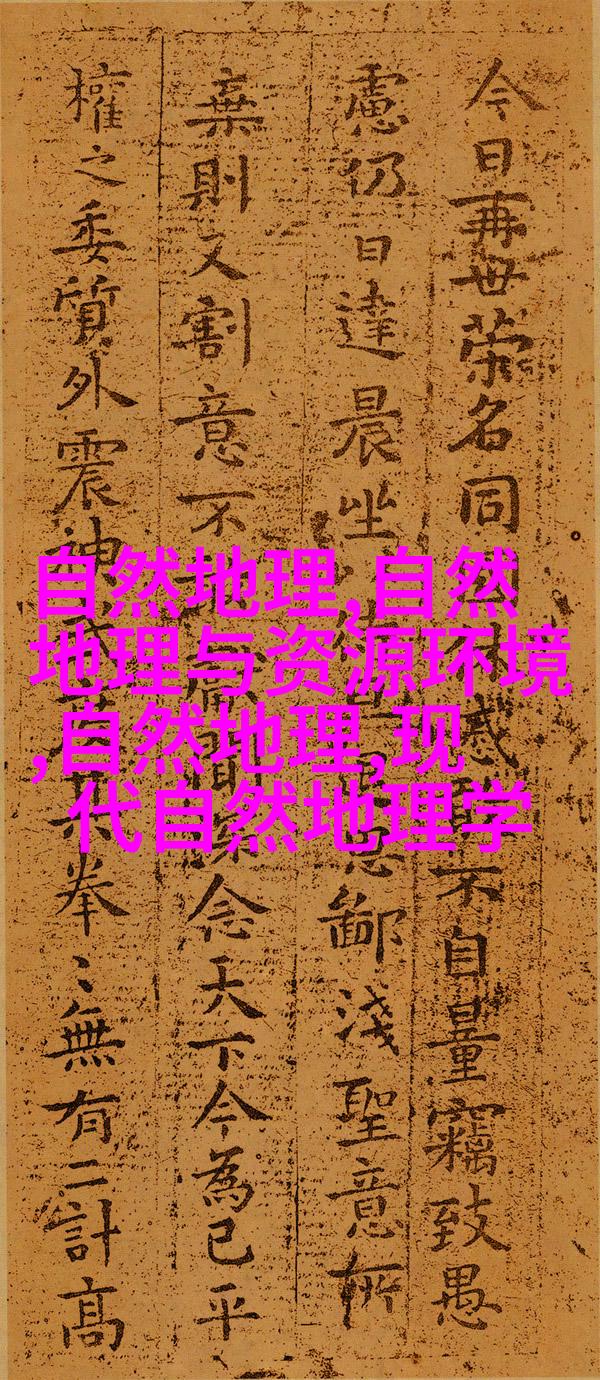 今日再世榮名同休慼不自量竊致愚
慮仍日達晨坐思鄙淺聖意所
棄則又割意不聞深念天下今為已平
權之委質外震神拳〻無有二計高
自然地理,自然
地理与资源环境
,自然地理,现
代自然地理学